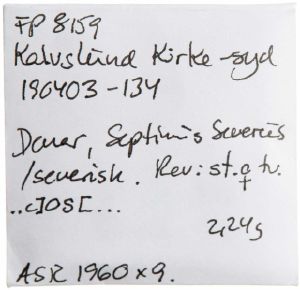 FP 8159
Kalvslund Kirke - syd
190403-134
Denar, Septimius Severus
/severisk. Rev: st. ♀ tv.
..c]OS[...
2,24g
ASR 1960 x 9.